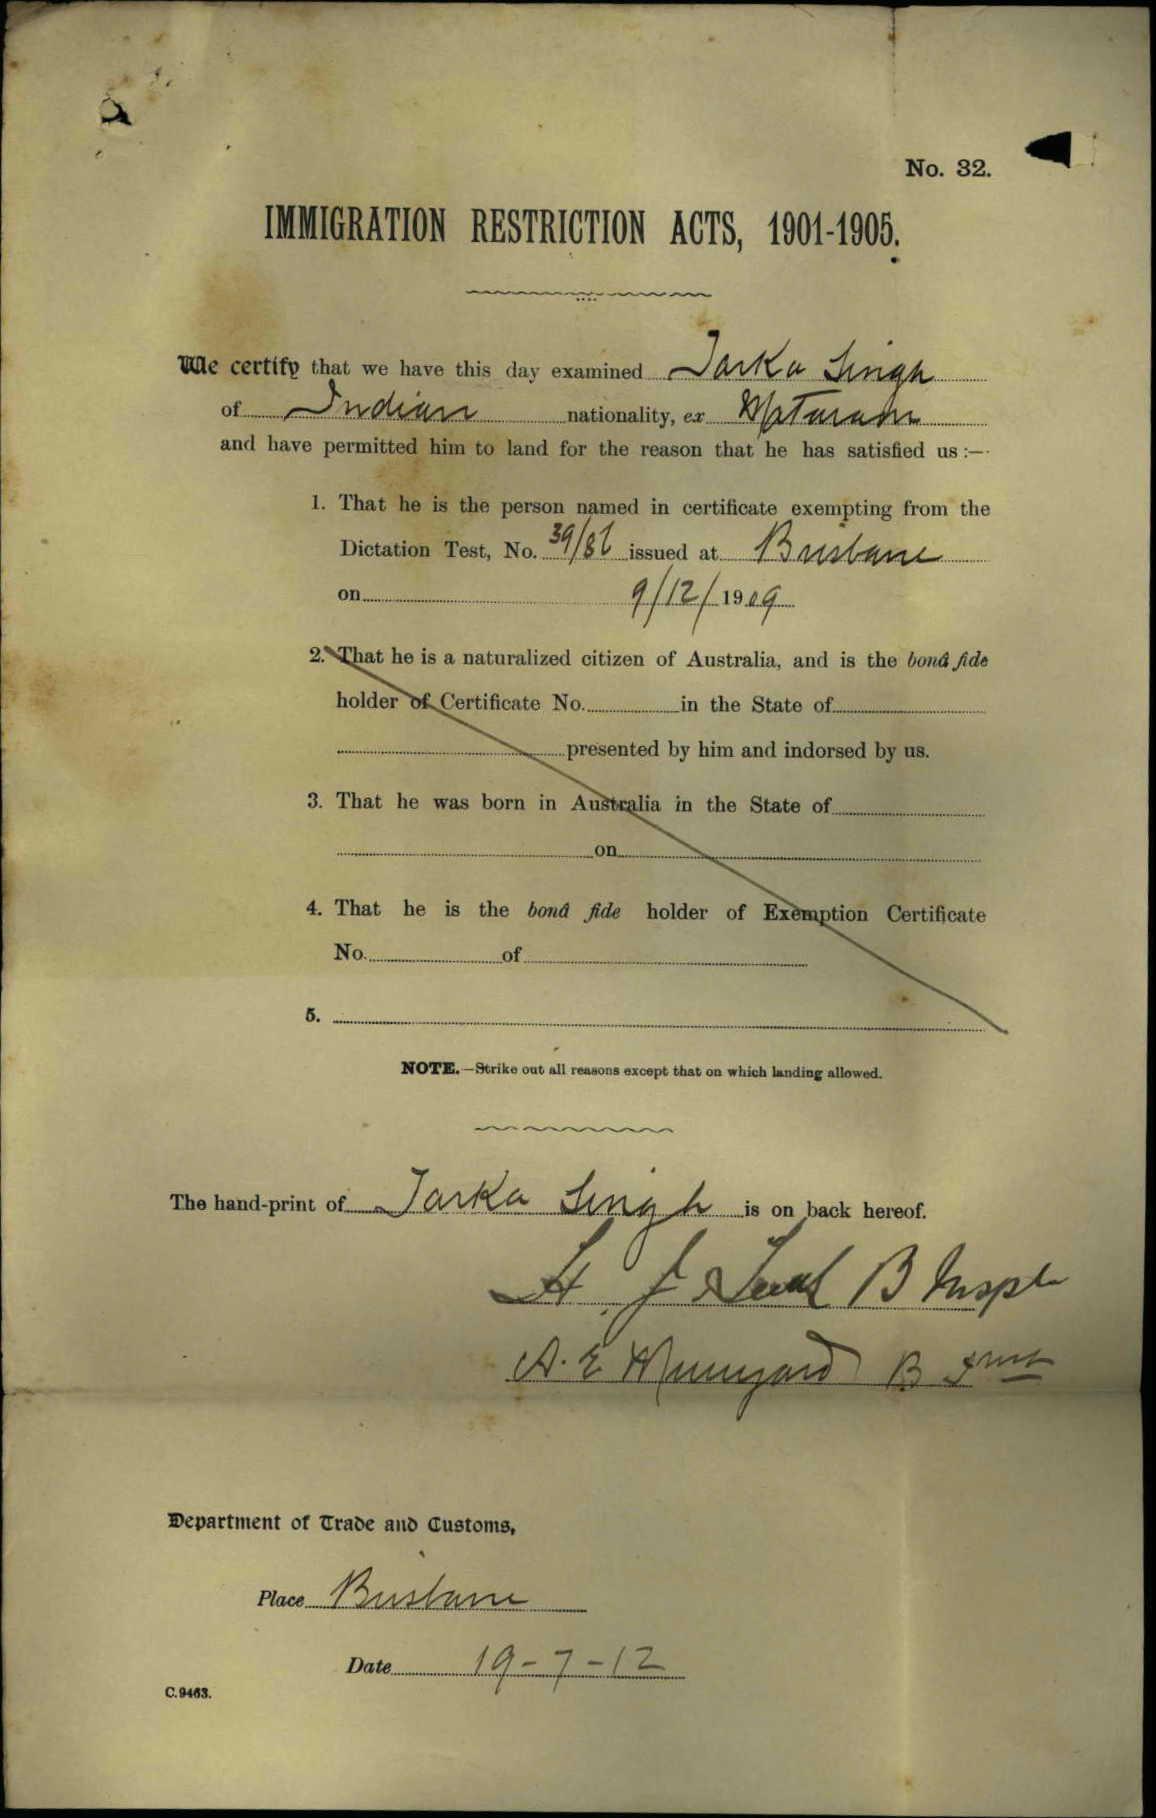 No. 32.
IMMIGRATION RESTRICTION ACTS, 1901-1905.
We certify that we have this day examined Tarka Singh
of Indian nationality, ex Mataram
and have permitted him to land for the reason that he has satisfied us :—
1. That he is the person named in certificate exempting from the
Dictation Test, No. 39/86 issued at Brisbane
on 9/12/1909
2. That he is a naturalized citizen of Australia, and is the bonâ fide
holder of Certificate No. in the State of
presented by him and indorsed by us.
3. That he was born in Australia in the State of
on
4. That he is the bonâ fide holder of Exemption Certificate
No. of
5.
NOTE.—Strike out all reasons except that on which landing allowed.
The hand-print of Tarka Singh is on back hereof.
H. J. B Inspr
A. E B
Department of Trade and Customs,
Place Brisbane
Date 19-7-12
C.9463.